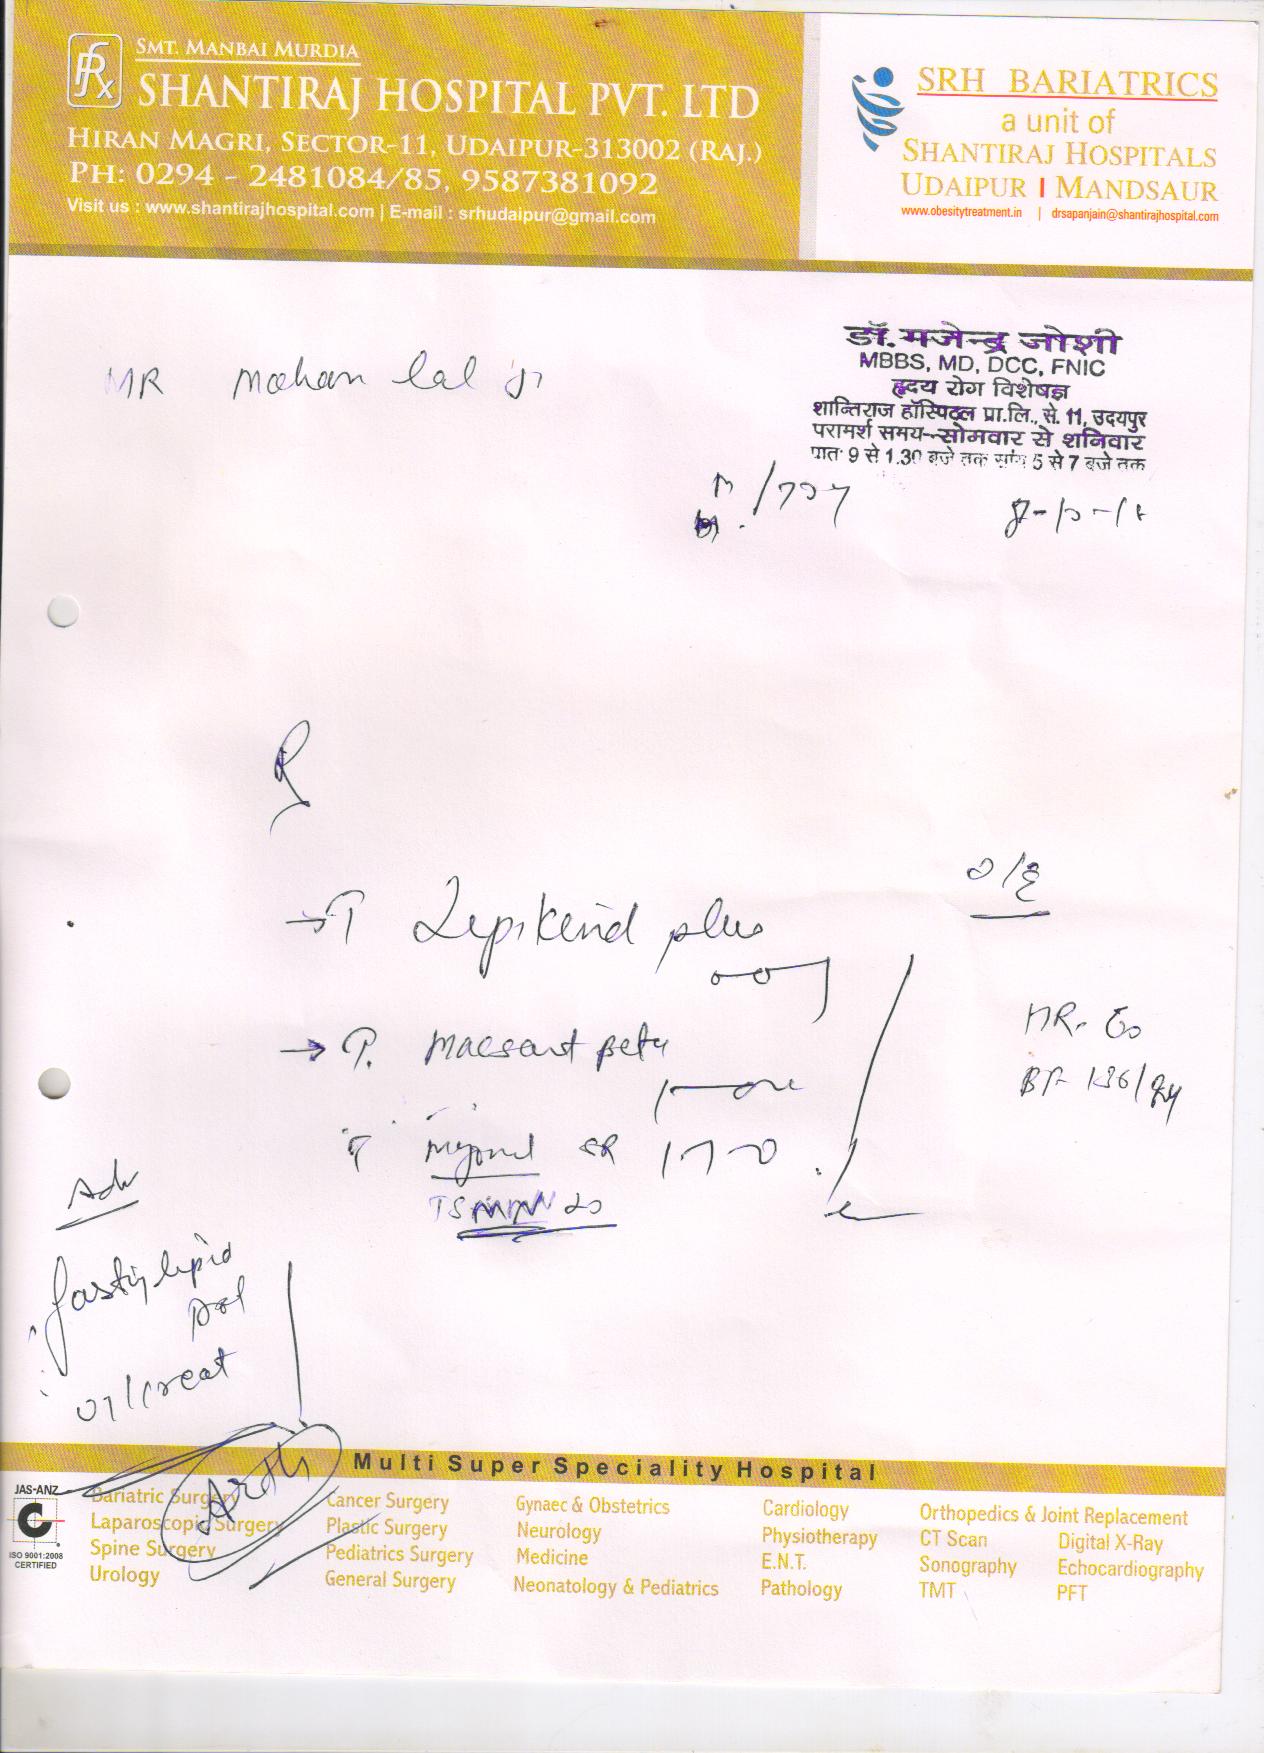 SMT. MANBAI MURDIA
SHANTIRAJ HOSPITAL PVT. LTD
HIRAN MAGRI, SECTOR-11, UDAIPUR-313002 (RAJ.)
PH: 0294 - 2481084/85, 9587381092
Visit us : www.shantirajhospital.com | E-mail : srhudaipur@gmail.com
SRH BARIATRICS
a unit of
SHANTIRAJ HOSPITALS
UDAIPUR | MANDSAUR
www.obesitytreatment.in | drsapanjain@shantirajhospital.com
डॉ. गजेन्द्र जोशी
MBBS, MD, DCC, FNIC
हृदय रोग विशेषज्ञ
शान्तिराज हॉस्पिटल प्रा.लि., से. 11, उदयपुर
परामर्श समय--सोमवार से शनिवार
प्रातः 9 से 1.30 बजे तक सांय 5 से 7 बजे तक
MR Mohan lal ji
O/E
→ T plus
→ T.
HR-
BP- 136/
T SR
Adv
fasting lipid
/creat
Multi Super Speciality Hospital
JAS-ANZ
ISO 9001:2008
CERTIFIED
Bariatric Surgery
Laparoscopic Surgery
Spine Surgery
Urology
Cancer Surgery
Plastic Surgery
Pediatrics Surgery
General Surgery
Gynaec & Obstetrics
Neurology
Medicine
Neonatology & Pediatrics
Cardiology
Physiotherapy
E.N.T.
Pathology
Orthopedics & Joint Replacement
CT Scan Digital X-Ray
Sonography Echocardiography
TMT PFT